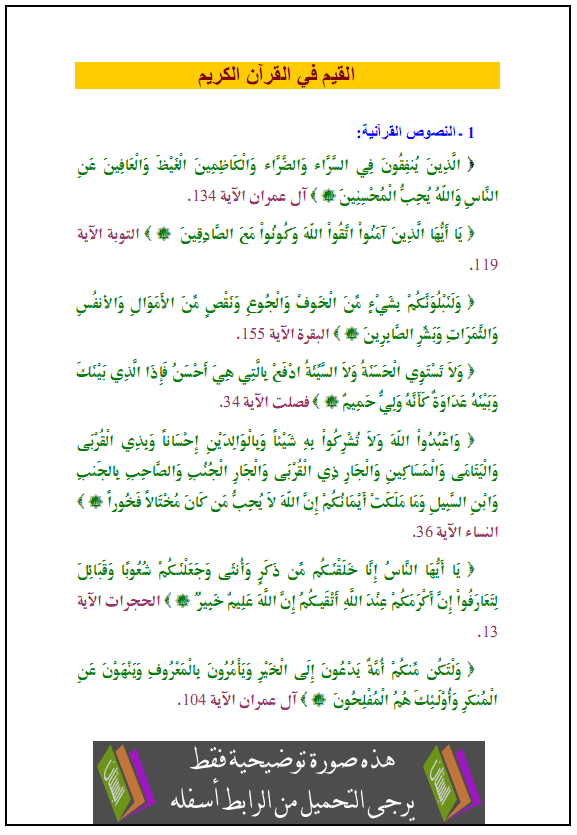 القيم في القرآن الكريم
1 ـ النصوص القرآنية:
﴿ الَّذِينَ يُنفِقُونَ فِي السَّرَّاء وَالضَّرَّاء وَالْكَاظِمِينَ الْغَيْظَ وَالْعَافِينَ عَنِ
النَّاسِ وَاللّهُ يُحِبُّ الْمُحْسِنِينَ ۝ ﴾ آل عمران الآية 134.
﴿ يَا أَيُّهَا الَّذِينَ آمَنُواْ اتَّقُواْ اللّهَ وَكُونُواْ مَعَ الصَّادِقِينَ ۝ ﴾ التوبة الآية
119.
﴿ وَلَنَبْلُوَنَّكُمْ بِشَيْءٍ مِّنَ الْخَوفْ وَالْجُوعِ وَنَقْصٍ مِّنَ الأَمَوَالِ وَالأنفُسِ
وَالثَّمَرَاتِ وَبَشِّرِ الصَّابِرِينَ ۝ ﴾ البقرة الآية 155.
﴿ وَلاَ تَسْتَوِي الْحَسَنَةُ وَلاَ السَّيِّئَةُ ادْفَعْ بِالَّتِي هِيَ أَحْسَنُ فَإِذَا الَّذِي بَيْنَكَ
وَبَيْنَهُ عَدَاوَةٌ كَأَنَّهُ وَلِيٌّ حَمِيمٌ ۝ ﴾ فصلت الآية 34.
﴿ وَاعْبُدُواْ اللّهَ وَلاَ تُشْرِكُواْ بِهِ شَيْئاً وَبِالْوَالِدَيْنِ إِحْسَاناً وَبِذِي الْقُرْبَى
وَالْيَتَامَى وَالْمَسَاكِينِ وَالْجَارِ ذِي الْقُرْبَى وَالْجَارِ الْجُنُبِ وَالصَّاحِبِ بِالجَنبِ
وَابْنِ السَّبِيلِ وَمَا مَلَكَتْ أَيْمَانُكُمْ إِنَّ اللّهَ لاَ يُحِبُّ مَن كَانَ مُخْتَالاً فَخُوراً ۝ ﴾
النساء الآية 36.
﴿ يَا أَيُّهَا النَّاسُ إِنَّا خَلَقْنَـكُم مِّن ذَكَرٍ وَأُنثَى وَجَعَلْنَـكُمْ شُعُوبًا وَقَبَائِلَ
لِتَعَارَفُواْ إِنَّ أَكْرَمَكُمْ عِنْدَ اللَّهِ أَتْقَيـكُمْ إِنَّ اللَّهَ عَلِيمٌ خَبِيرٌ ۝ ﴾ الحجرات الآية
13.
﴿ وَلْتَكُن مِّنكُمْ أُمَّةٌ يَدْعُونَ إِلَى الْخَيْرِ وَيَأْمُرُونَ بِالْمَعْرُوفِ وَيَنْهَوْنَ عَنِ
الْمُنكَرِ وَأُوْلَـئِكَ هُمُ الْمُفْلِحُونَ ۝ ﴾ آل عمران الآية 104.
هذه صورة توضيحية فقط
يرجى التحميل من الرابط أسفله